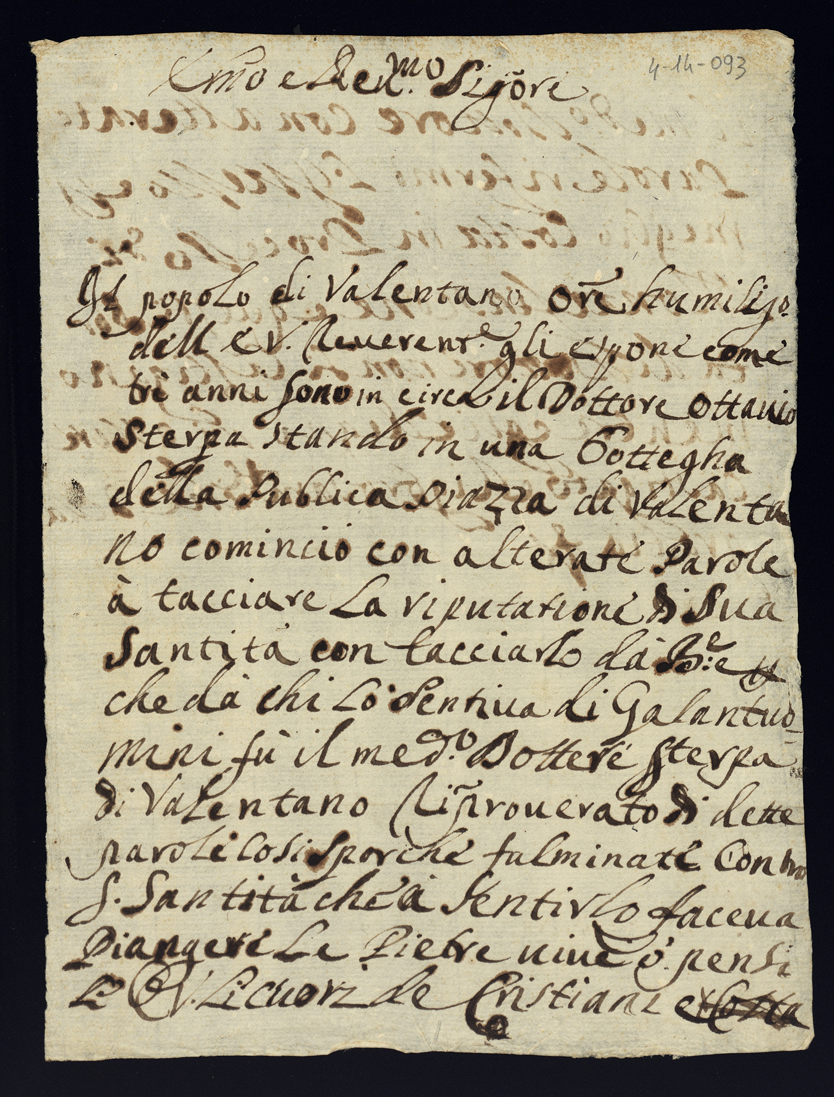 4-14-093
Ill.mo e Re.mo Sig.ore
Il popolo di Valentano Ore humiliss.o
dell E V. Reverent.e gli espone come
trè anni sono in circa il Dottore Ottavio
Sterpa stando in una bottegha
della Publica Piazza di Valenta
no cominciò con alterate Parole
à tacciare La riputatione di Sua
Santità con tacciarlo da B:e
che da chi Lo Sentiva di Galantuo=
mini fù il med.o Dottore Sterpa
di Valentano Riproverato di dette
parole così sporche fulminate Contro
S. Santità che à Sentirlo faceva
Piangere Le Pietre vive ò pensi
L E V. Li cuori de Cristiani